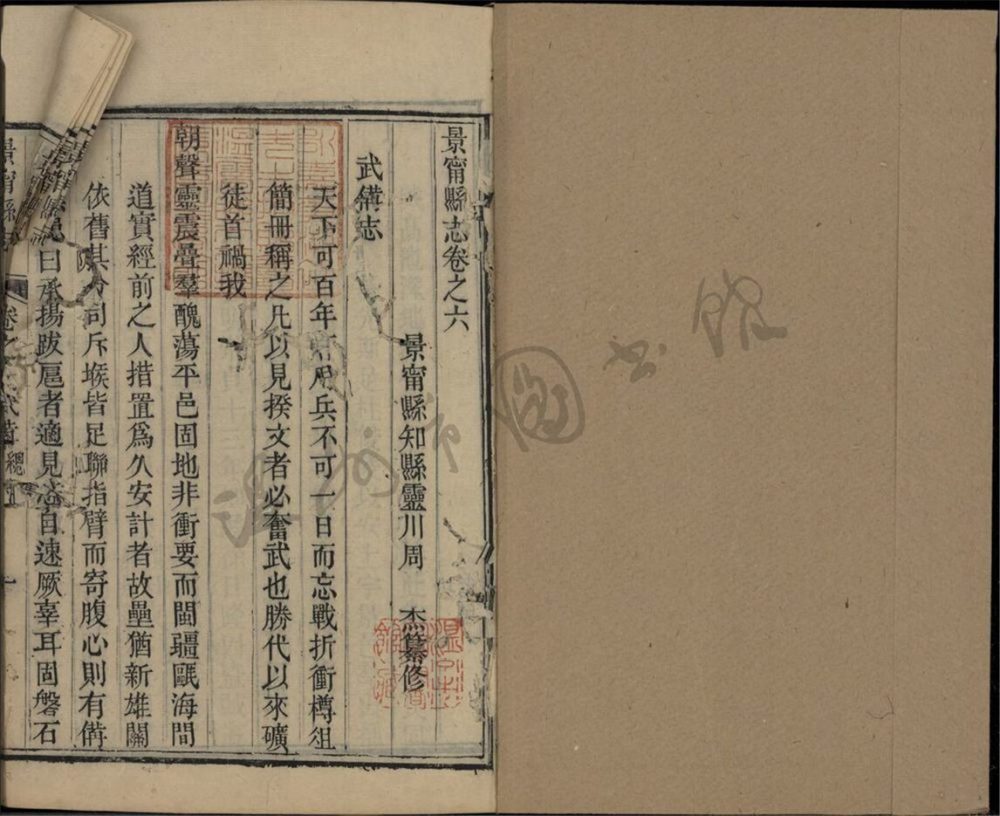 景甯縣志卷之六
景甯縣知縣靈川周 杰纂修
武備志
天下可百年不用兵不可一日而忘戰折衝樽俎
簡冊稱之凡以見揆文者必奮武也勝代以來礦
徒首禍我
朝聲靈震疊羣醜蕩平邑固地非衝要而閩疆甌海間
道實經前之人措置爲久安計者故壘猶新雄關
依舊其分司斥堠皆足聯指臂而寄腹心則有備
曰承揚跋扈者適見自速厥辜耳固磐石
景甯縣
卷之
溫州市圖書館